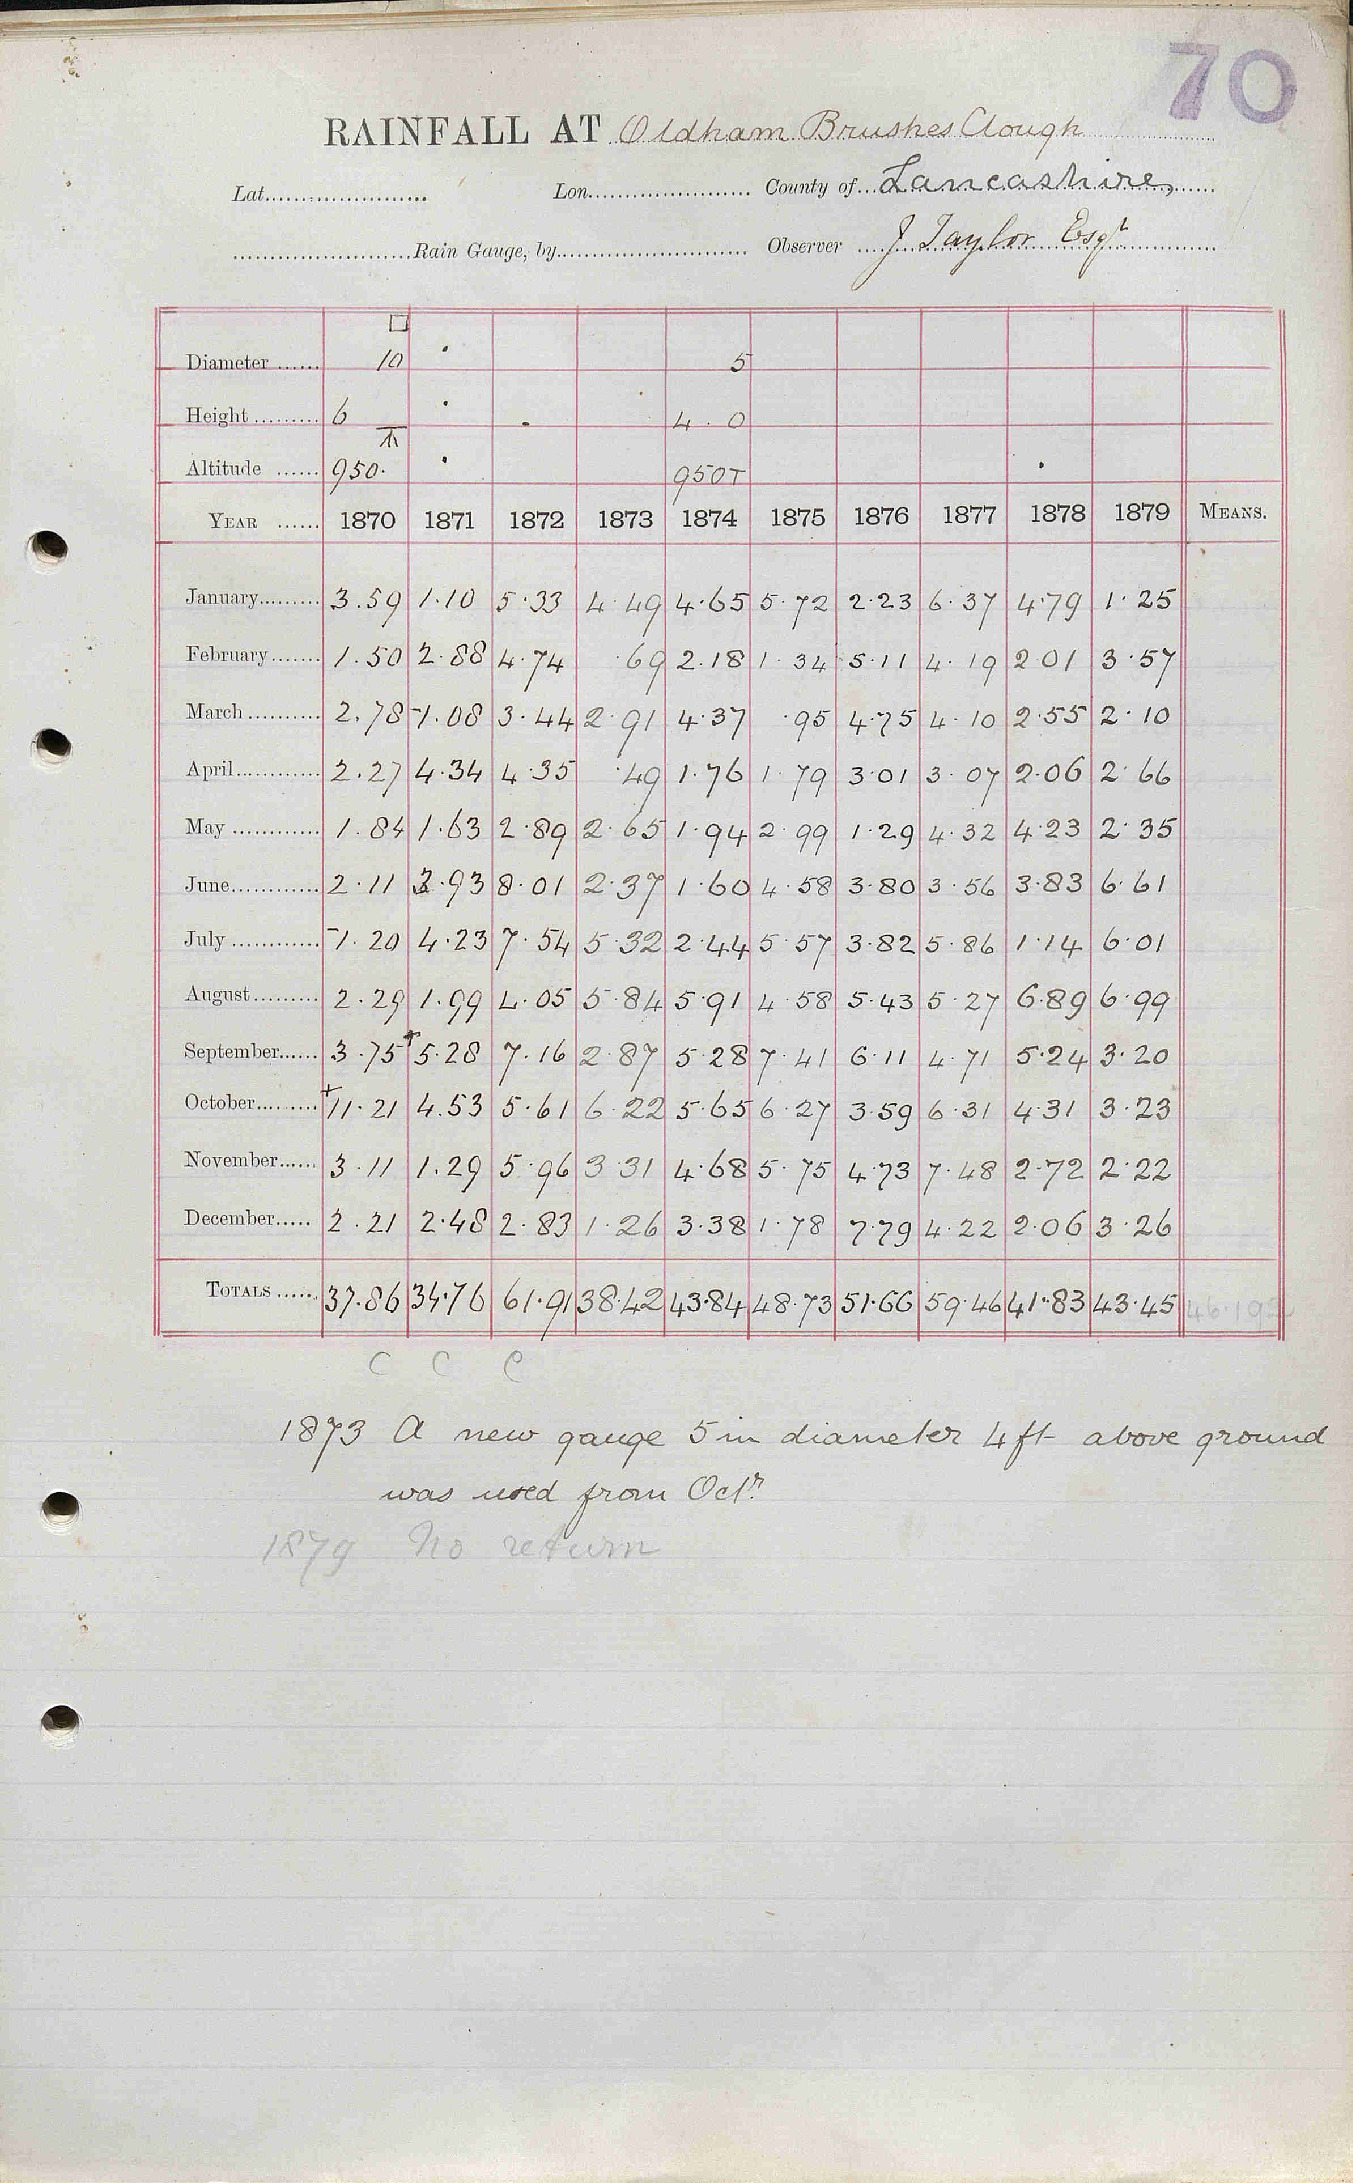 70
RAINFALL AT Oldham Brushes Clough
Lat. Lon. County of Lancashire,
Rain Gauge, by Observer J Taylor Esqr
Diameter 10 5
Height 6 4 . 0
Altitude 950. 950T
YEAR 1870 1871 1872 1873 1874 1875 1876 1877 1878 1879 MEANS.
January 3.59 1.10 5.33 4.49 4.65 5.72 2.23 6.37 4.79 1.25
February 1.50 2.88 4.74 .69 2.18 1.34 5.11 4.19 2 01 3.57
March 2.78 1.08 3.44 2.91 4.37 .95 4.75 4.10 2.55 2.10
April 2.27 4.34 4.35 .49 1.76 1.79 3.01 3.07 2.06 2.66
May 1.84 1.63 2.89 2.65 1.94 2.99 1.29 4.32 4.23 2.35
June 2.11 3.93 8.01 2.37 1.60 4.58 3.80 3.56 3.83 6.61
July 1.20 4.23 7.54 5.32 2.44 5.57 3.82 5.86 1.14 6.01
August 2.29 1.99 4.05 5.84 5.91 4.58 5.43 5.27 6.89 6.99
September 3.75 5.28 7.16 2.87 5.28 7.41 6.11 4.71 5.24 3.20
October 11.21 4.53 5.61 6.22 5.65 6.27 3.59 6.31 4.31 3.23
November 3.11 1.29 5.96 3.31 4.68 5.75 4.73 7.48 2.72 2.22
December 2.21 2.48 2.83 1.26 3.38 1.78 7.79 4.22 2.06 3.26
TOTALS 37.86 34.76 61.91 38.42 43.84 48.73 51.66 59.46 41.83 43.45 46.192
C C C
1873 A new gauge 5 in diameter 4 ft above ground
was used from Octr.
1879 No return